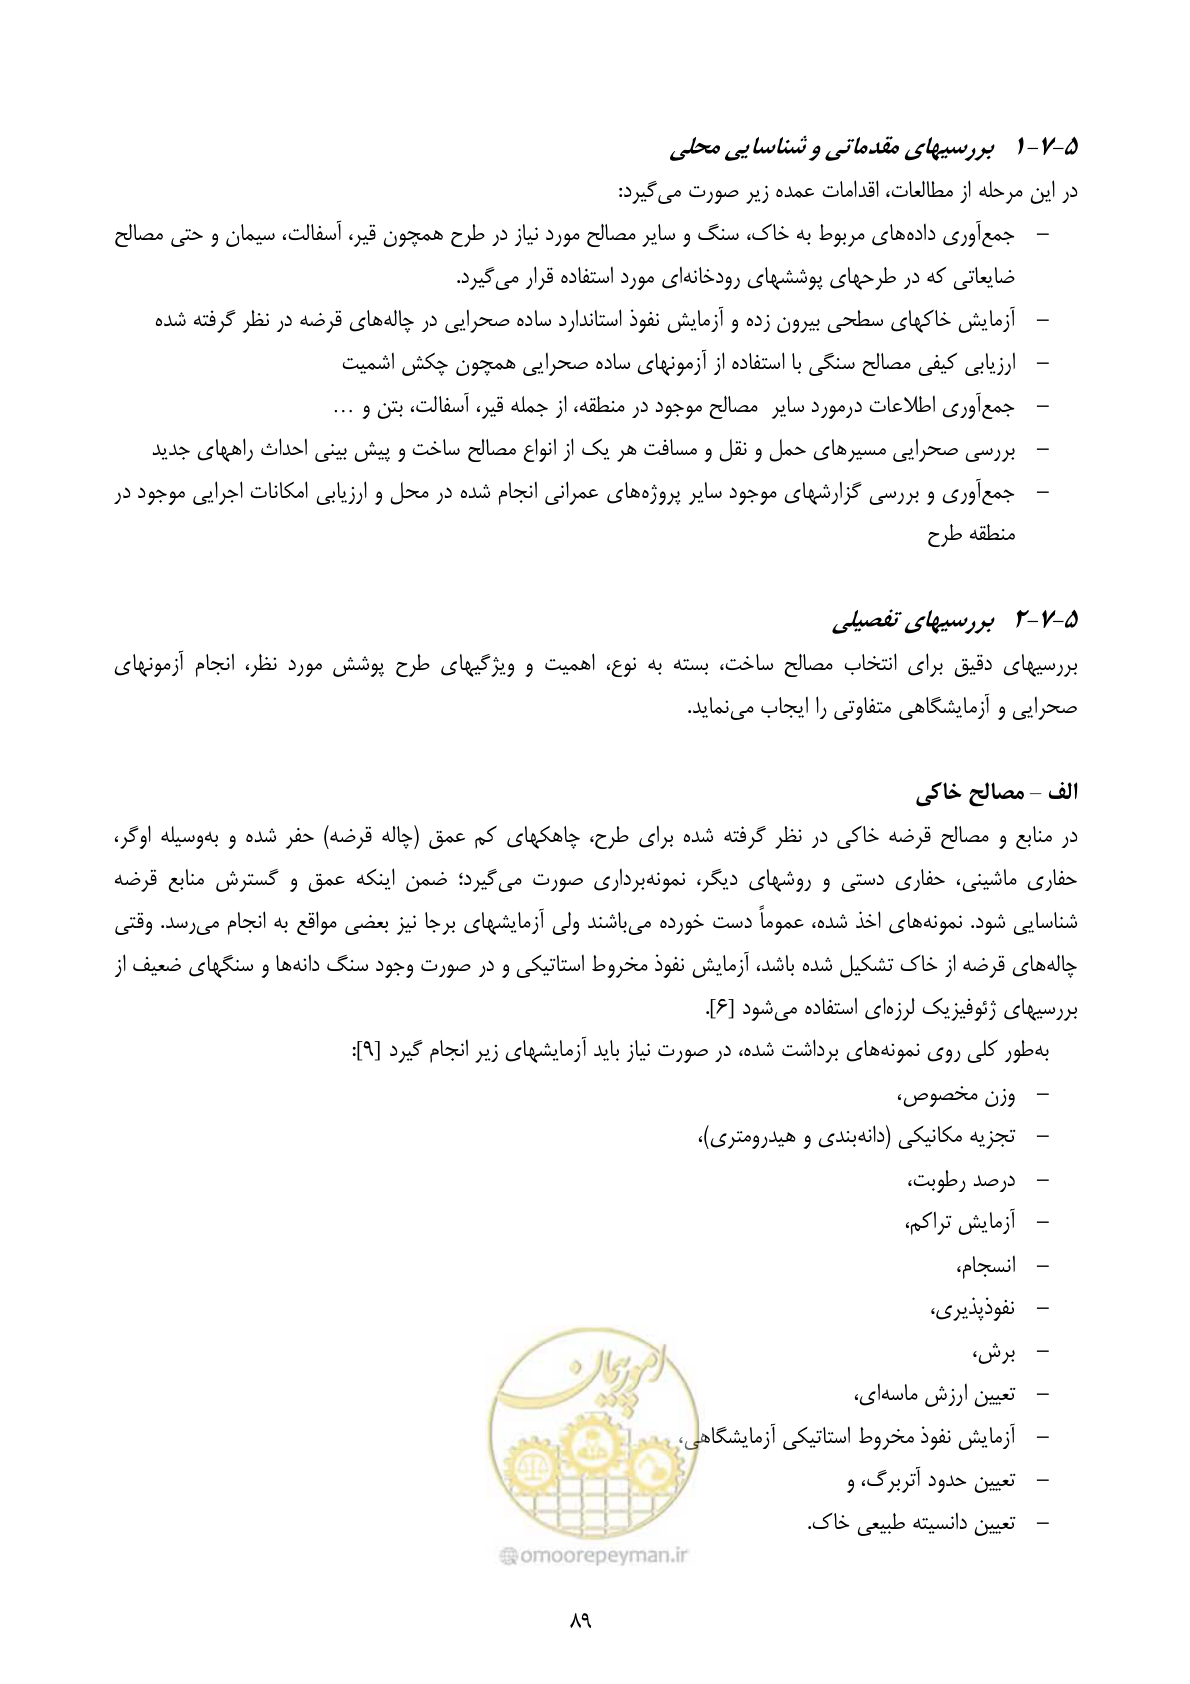 ۵-۷-۱ بررسیهای مقدماتی و شناسایی محلی
در این مرحله از مطالعات، اقدامات عمده زیر صورت می‌گیرد:
– جمع‌آوری داده‌های مربوط به خاک، سنگ و سایر مصالح مورد نیاز در طرح همچون قیر، آسفالت، سیمان و حتی مصالح
ضایعاتی که در طرحهای پوششهای رودخانه‌ای مورد استفاده قرار می‌گیرد.
– آزمایش خاکهای سطحی بیرون زده و آزمایش نفوذ استاندارد ساده صحرایی در چاله‌های قرضه در نظر گرفته شده
– ارزیابی کیفی مصالح سنگی با استفاده از آزمونهای ساده صحرایی همچون چکش اشمیت
– جمع‌آوری اطلاعات درمورد سایر مصالح موجود در منطقه، از جمله قیر، آسفالت، بتن و ...
– بررسی صحرایی مسیرهای حمل و نقل و مسافت هر یک از انواع مصالح ساخت و پیش بینی احداث راههای جدید
– جمع‌آوری و بررسی گزارشهای موجود سایر پروژه‌های عمرانی انجام شده در محل و ارزیابی امکانات اجرایی موجود در
منطقه طرح
۵-۷-۲ بررسیهای تفصیلی
بررسیهای دقیق برای انتخاب مصالح ساخت، بسته به نوع، اهمیت و ویژگیهای طرح پوشش مورد نظر، انجام آزمونهای
صحرایی و آزمایشگاهی متفاوتی را ایجاب می‌نماید.
الف – مصالح خاکی
در منابع و مصالح قرضه خاکی در نظر گرفته شده برای طرح، چاهکهای کم عمق (چاله قرضه) حفر شده و به‌وسیله اوگر،
حفاری ماشینی، حفاری دستی و روشهای دیگر، نمونه‌برداری صورت می‌گیرد؛ ضمن اینکه عمق و گسترش منابع قرضه
شناسایی شود. نمونه‌های اخذ شده، عموماً دست خورده می‌باشند ولی آزمایشهای برجا نیز بعضی مواقع به انجام می‌رسد. وقتی
چاله‌های قرضه از خاک تشکیل شده باشد، آزمایش نفوذ مخروط استاتیکی و در صورت وجود سنگ دانه‌ها و سنگهای ضعیف از
بررسیهای ژئوفیزیک لرزه‌ای استفاده می‌شود [۶].
به‌طور کلی روی نمونه‌های برداشت شده، در صورت نیاز باید آزمایشهای زیر انجام گیرد [۹]:
– وزن مخصوص،
– تجزیه مکانیکی (دانه‌بندی و هیدرومتری)،
– درصد رطوبت،
– آزمایش تراکم،
– انسجام،
– نفوذپذیری،
– برش،
– تعیین ارزش ماسه‌ای،
– آزمایش نفوذ مخروط استاتیکی آزمایشگاهی،
– تعیین حدود آتربرگ، و
– تعیین دانسیته طبیعی خاک.
امور پیمان
@omoorepeyman.ir
۸۹